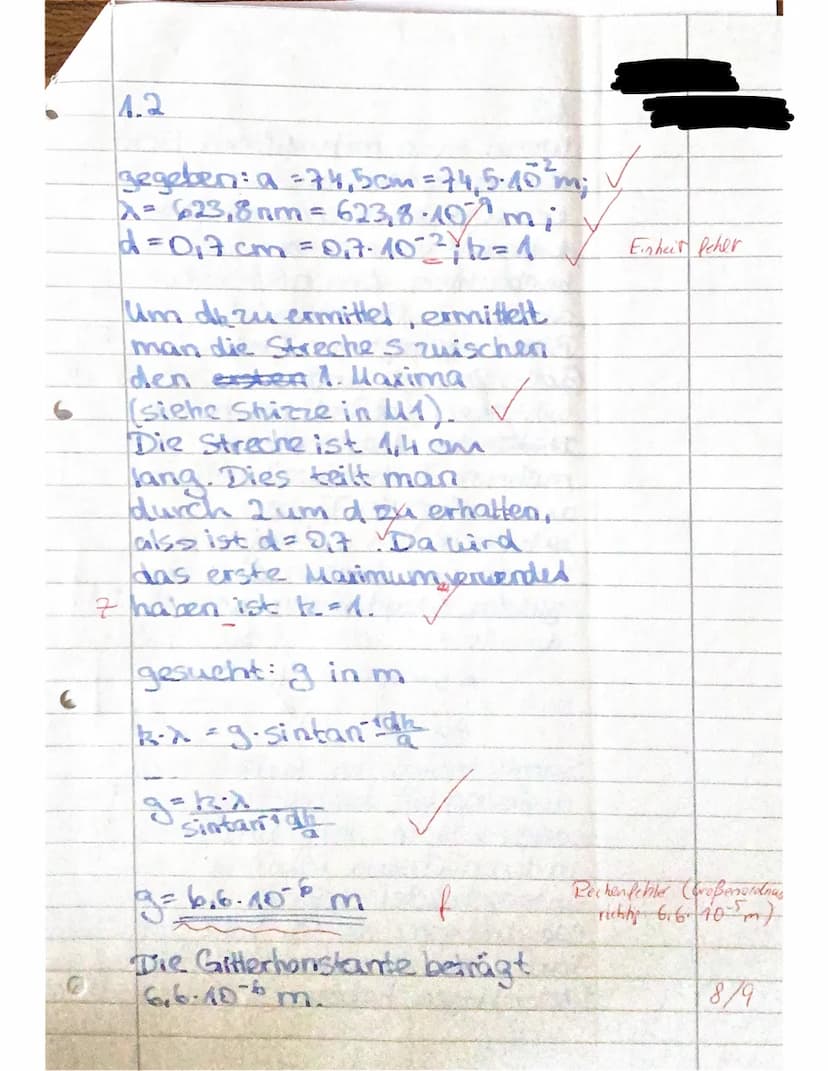 1.2
gegeben: a = 74,5cm = 74,5·10⁻²m;
λ = 623,8nm = 623,8·10⁻⁹ m;
d = 0,7 cm = 0,7·10⁻²; k = 1
Einheit fehlt
Um dk zu ermittel, ermittelt
man die Strecke s zwischen
den ersten 1. Maxima
(siehe Skizze in M1).
Die Strecke ist 1,4 cm
lang. Dies teilt man
durch 2 um d zu erhalten,
also ist d = 0,7. Da wird
das erste Maximum verwendet
7 haben ist k = 1.
gesucht: g in m
k·λ = g·sin tan⁻¹ dk/a
g = k·λ / sin tan⁻¹ dk/a
g = 6,6·10⁻⁶ m f
Rechenfehler (Größenordnu
richtig 6,6·10⁻⁵ m)
Die Gitterkonstante beträgt
6,6·10⁻⁶ m.
8/9